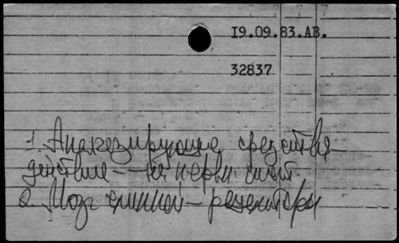 19.09.83.АВ.
32837
1. Анализирующие средства
действие — на нервн. сист.
2. Мозг спинной — рецепторы